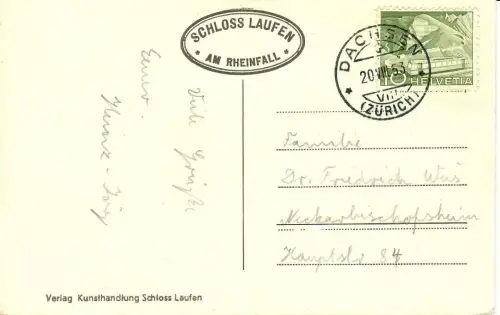 SCHLOSS LAUFEN
* AM RHEINFALL *
* DACHSEN *
20.VIII.53
VIII
(ZÜRICH)
10 HELVETIA
Viele Grüße
Euer
Heinz-Jörg
Familie
Dr. Friedrich Wüs
Neckarbischofsheim
Hauptstr 84
Verlag Kunsthandlung Schloss Laufen